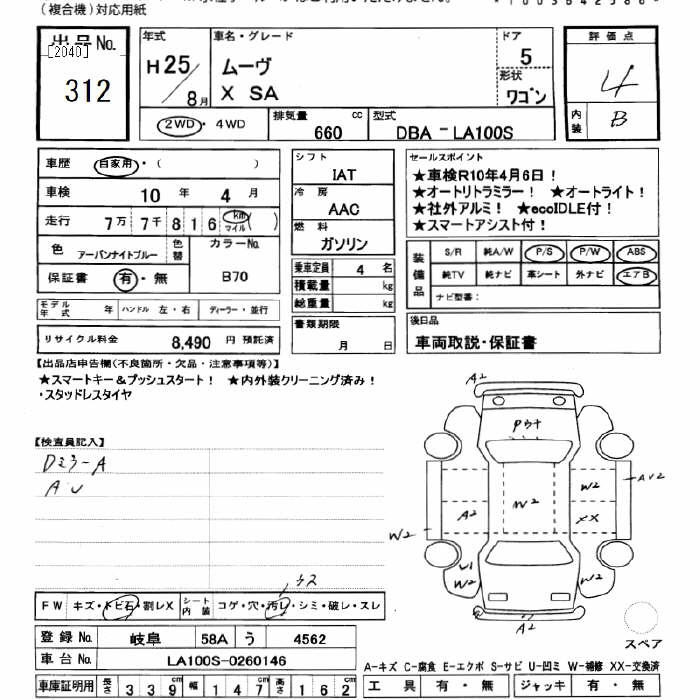 (複合機)対応用紙
出品No.
[2040]
312
年式
H25/8月
車名・グレード
ムーヴ
X SA
ドア
5
形状
ワゴン
評価点
4
内装
B
2WD・4WD
排気量
660 cc
型式
DBA-LA100S
車歴
自家用・( )
車検
10 年 4 月
走行
7万 7千 8 1 6 km マイル ( )
色
アーバンナイトブルー
色替
カラーNo.
B70
保証書
有・無
シフト
IAT
冷房
AAC
燃料
ガソリン
乗車定員 4 名
積載量 kg
総重量 kg
セールスポイント
★車検R10年4月6日!
★オートリトラミラー! ★オートライト!
★社外アルミ! ★ecoIDLE付!
★スマートアシスト付!
装備品
S/R 純A/W P/S P/W ABS
純TV 純ナビ 革シート 外ナビ エアB
ナビ型番:
モデル年式 年 ハンドル 左・右 ディーラー・並行
リサイクル料金 8,490 円 預託済
書類期限
月 日
後日品
車両取説・保証書
【出品店申告欄(不良箇所・欠品・注意事項等)】
★スマートキー&プッシュスタート! ★内外装クリーニング済み!
・スタッドレスタイヤ
【検査員記入】
Dミラー A
A U
A2
W2
W2
A2
XX
AU2
W2
U1
W2
W2
A2
FW キズ・トビ石・割レX シート内装 コゲ・穴・汚レ・シミ・破レ・スレ
登録No. 岐阜 58A う 4562
車台No. LA100S-0260146
車庫証明用 長さ 339cm 幅 147cm 高さ 162cm
スペア
A-キズ C-腐食 E-エクボ S-サビ U-凹ミ W-補修 XX-交換済
工具 有・無 ジャッキ 有・無